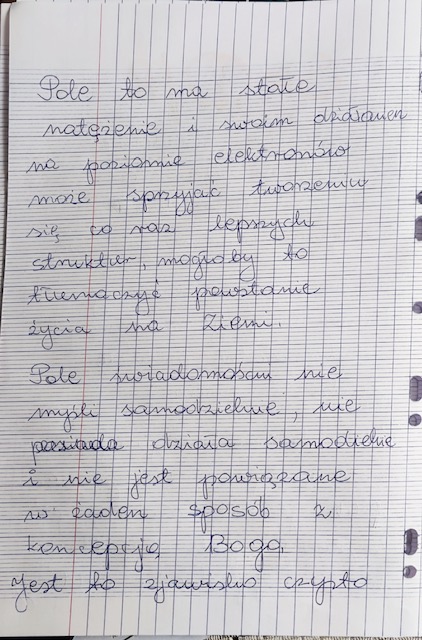 Pole to ma stałe
natężenie i swoim działaniem
na poziomie elektronów
może sprzyjać tworzeniu
się co raz lepszych
struktur, mogłoby to
tłumaczyć powstanie
życia na Ziemi.
Pole świadomości nie
myśli samodzielnie, nie
działa samodzielnie
i nie jest powiązane
w żaden sposób z
koncepcją Boga.
Jest to zjawisko czysto